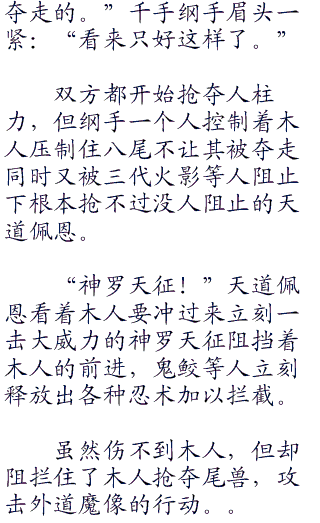 夺走的。”千手纲手眉头一
紧：“看来只好这样了。”
双方都开始抢夺人柱
力，但纲手一个人控制着木
人压制住八尾不让其被夺走
同时又被三代火影等人阻止
下根本抢不过没人阻止的天
道佩恩。
“神罗天征！”天道佩
恩看着木人要冲过来立刻一
击大威力的神罗天征阻挡着
木人的前进，鬼鲛等人立刻
释放出各种忍术加以拦截。
虽然伤不到木人，但却
阻拦住了木人抢夺尾兽，攻
击外道魔像的行动。。